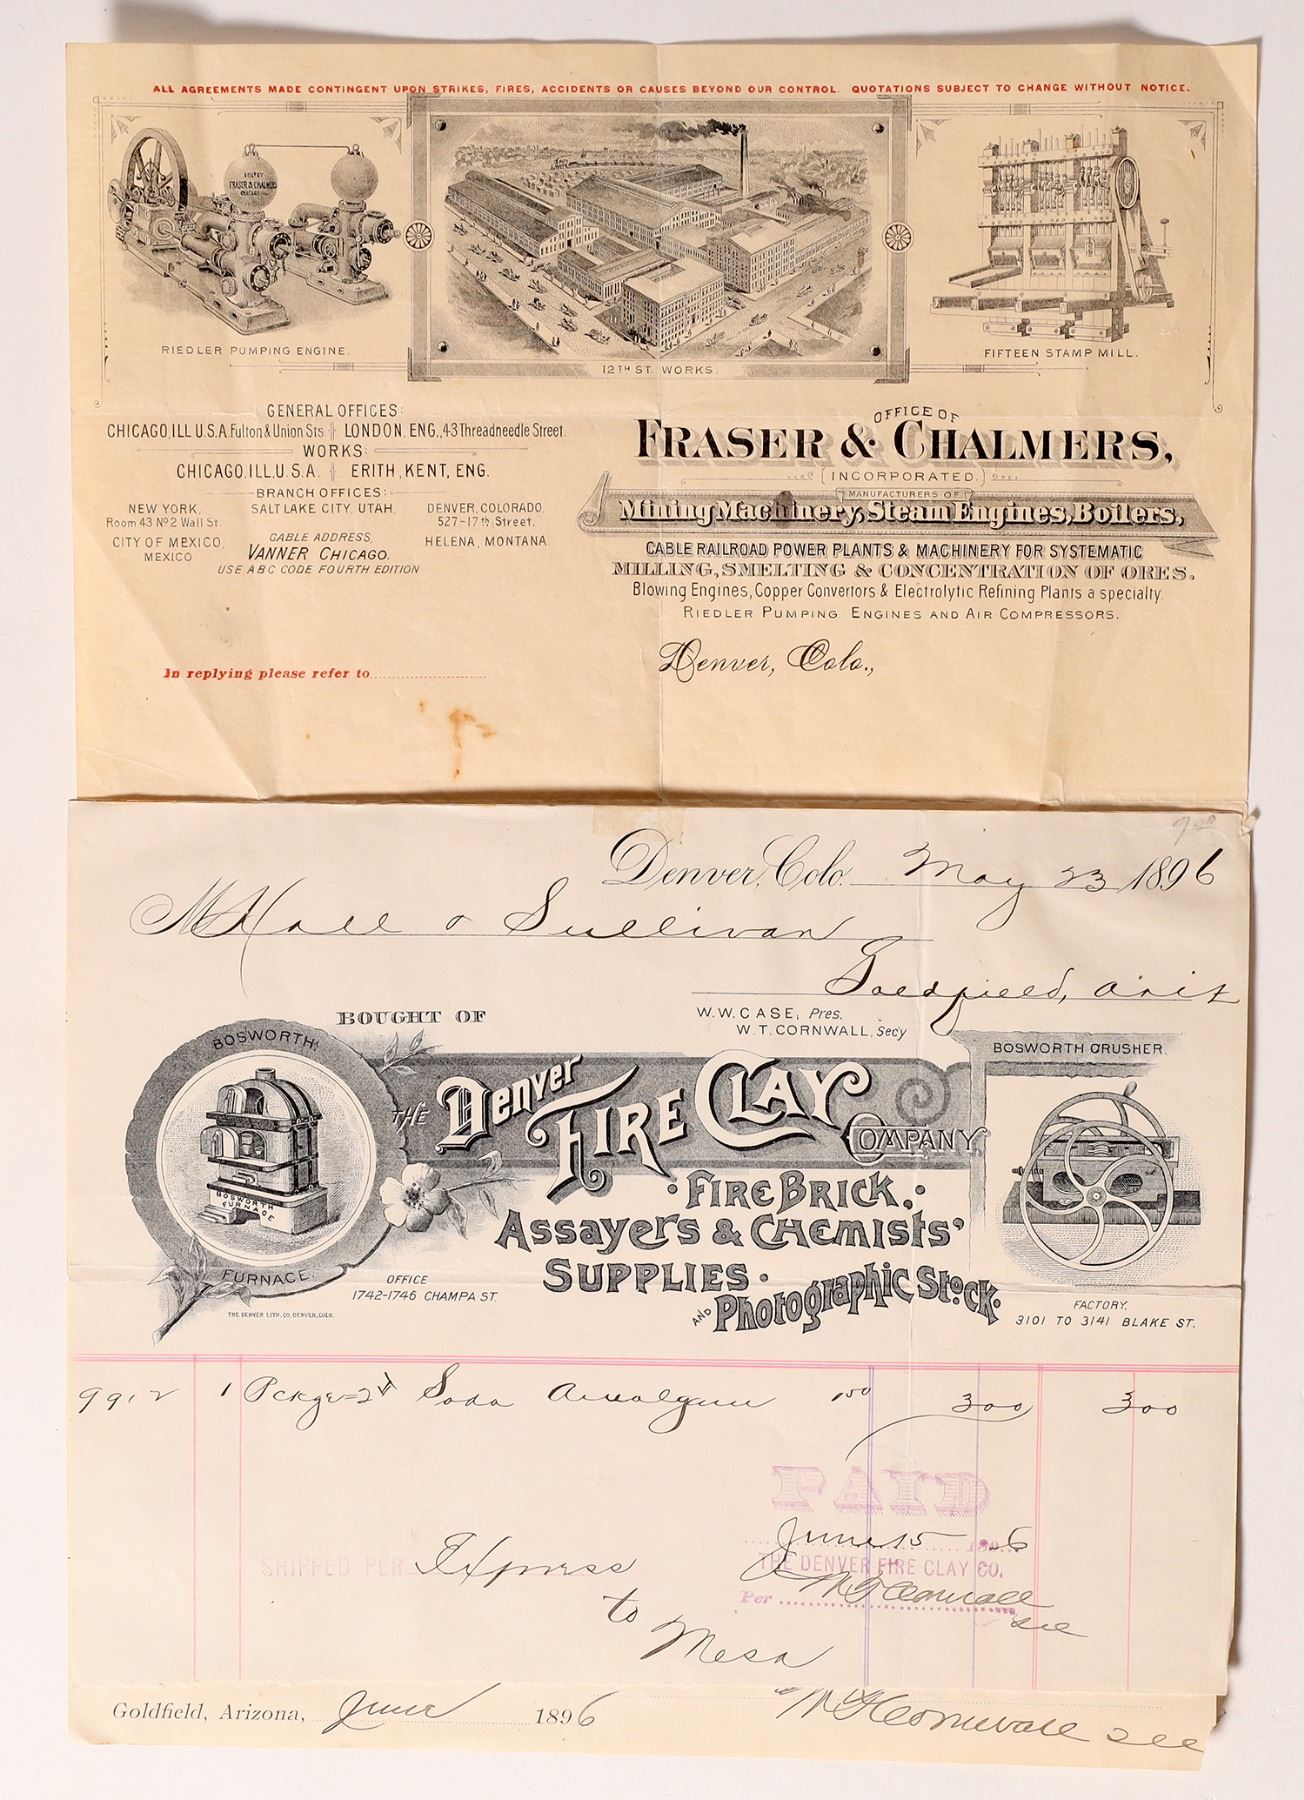 ALL AGREEMENTS MADE CONTINGENT UPON STRIKES, FIRES, ACCIDENTS OR CAUSES BEYOND OUR CONTROL. QUOTATIONS SUBJECT TO CHANGE WITHOUT NOTICE.
FRASER & CHALMERS
CHICAGO, ILL.
RIEDLER PUMPING ENGINE.
12TH ST. WORKS.
FIFTEEN STAMP MILL.
GENERAL OFFICES:
CHICAGO, ILL U.S.A. Fulton & Union Sts. LONDON, ENG., 43 Threadneedle Street.
WORKS:
CHICAGO, ILL. U.S.A. ERITH, KENT, ENG.
BRANCH OFFICES:
NEW YORK, Room 43 No 2 Wall St.
SALT LAKE CITY, UTAH,
DENVER, COLORADO, 527-17th Street.
CITY OF MEXICO, MEXICO
HELENA, MONTANA
CABLE ADDRESS,
VANNER CHICAGO.
USE A B C CODE FOURTH EDITION
OFFICE OF
FRASER & CHALMERS,
(INCORPORATED.)
MANUFACTURERS OF
Mining Machinery, Steam Engines, Boilers,
CABLE RAILROAD POWER PLANTS & MACHINERY FOR SYSTEMATIC
MILLING, SMELTING & CONCENTRATION OF ORES.
Blowing Engines, Copper Convertors & Electrolytic Refining Plants a specialty.
RIEDLER PUMPING ENGINES AND AIR COMPRESSORS.
In replying please refer to
Denver, Colo.,
Denver, Colo. May 23 1896
M Hall & Sullivan
Goldfield, Ariz
BOUGHT OF
W. W. CASE, Pres.
W. T. CORNWALL, Secy
BOSWORTH
BOSWORTH FURNACE
FURNACE.
THE Denver FIRE CLAY COMPANY
BOSWORTH CRUSHER
FIRE BRICK,
ASSAYERS & CHEMISTS'
SUPPLIES
AND Photographic Stock.
OFFICE
1742-1746 CHAMPA ST.
THE DENVER LITH. CO. DENVER, COLO.
FACTORY,
3101 TO 3141 BLAKE ST.
9912 1 Pckge = 2# Soda Amalgum 1 50 3 00 3 00
PAID
June 15 1896
THE DENVER FIRE CLAY CO.
Per W T Cornwall
Sec
SHIPPED PER Express
to
Mesa
Goldfield, Arizona, June 1896
W T Cornwall Sec